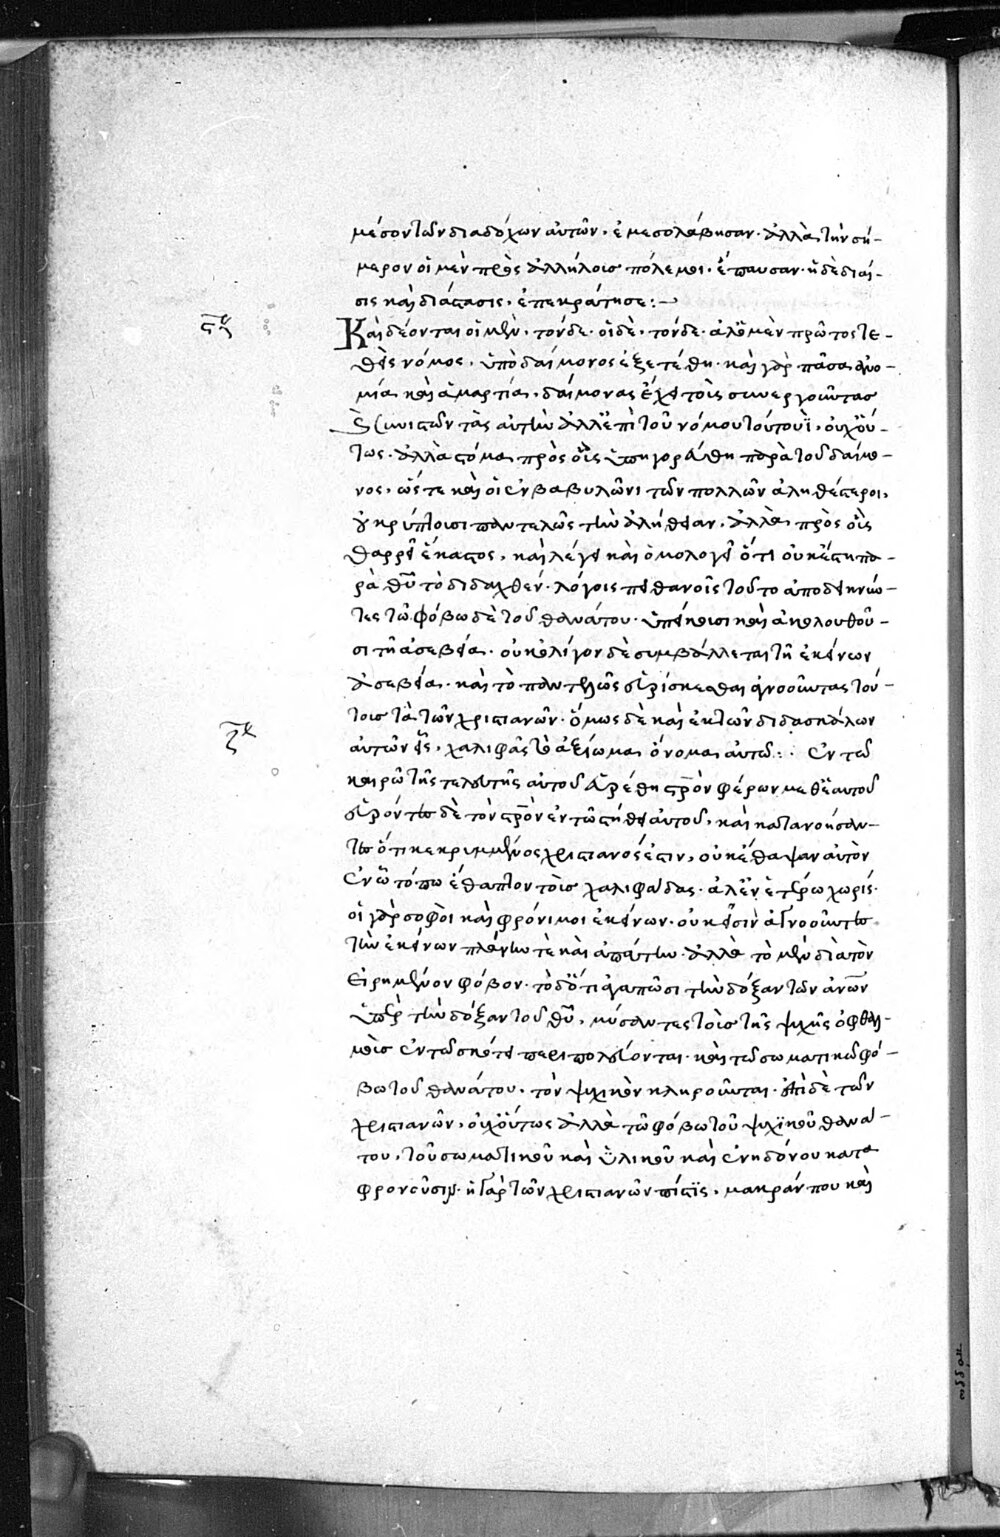 μέσον τῶν διαδόχων αὐτῶν, ἐμεσολάβησαν· ἀλλὰ τὴν σή-
μερον οἱ μὲν πρὸς ἀλλήλοις πόλεμοι, ἔπαυσαν· ἡ δὲ διαί-
σις καὶ διάστασις, ἐπεκράτησε:-
Καὶ δέονται οἱ μὲν, τόνδε· οἱ δὲ, τόνδε· ὁ μὲν πρῶτος τε-
θεὶς νόμος, ὑπὸ δαίμονος ἐξετέθη· καὶ γὰρ πᾶσα ἀνο-
μία καὶ ἁμαρτία, δαίμονας ἔχει τοὺς συνεργοῦντας
καὶ συνιστῶντας αὐτὴν ἀλλ' ἐπὶ τοῦ νόμου τούτου, οὐχ οὕ-
τως· ἀλλὰ στόμα πρὸς οὓς ὑπηγορεύθη παρὰ τοῦ δαίμο-
νος, ὥστε καὶ οἱ ἐν βαβυλῶνι τῶν πολλῶν ἀληθέστεροι,
οὐ κρύπτουσι παντελῶς τὴν ἀλήθειαν, ἀλλὰ πρὸς οὓς
θαρρεῖ ἕκαστος, καὶ λέγει καὶ ὁμολογεῖ ὅτι οὐκ ἔστι πα-
ρὰ θῦ τὸ διδαχθέν· λόγοις πιθανοῖς τοῦτο ἀποδεικνύω-
τες τῶ φόβω δὲ τοῦ θανάτου· ὑπείκουσι καὶ ἀκολουθοῦ-
σι τῆ ἀσεβεία· οὐκ ὀλίγον δὲ συμβάλλεται τῆ ἐκείνων
ἀσεβεία· καὶ τὸ παντελῶς εὑρίσκεσθαι ἀγνοοῦντας τού-
τους τὰ τῶν χριστιανῶν· ὅμως δὲ καὶ ἐκ τῶν διδασκάλων
αὐτῶν εἷς, χαλιφᾶς τὸ ἀξίωμα ὄνομα αὐτῶ:· ἐν τῶ
καιρῶ τῆς τελευτῆς αὐτοῦ εὑρέθη στρὸν φέρων μεθ' ἑαυτοῦ
εὑρόντες δὲ τὸν στρὸν ἐν τῶ στήθει αὐτοῦ, καὶ κατανοήσαν-
τες ὅτι κεκρυμμένος χριστιανός ἐστιν, οὐκ ἔθαψαν αὐτὸν
ἐν ᾧ τόπω ἔθαπτον τοὺς χαλιφάδας· ἀλλ' ἐν ἑτέρω χωρίς·
οἱ γὰρ σοφοὶ καὶ φρόνιμοι ἐκείνων· οὐκ εἰσὶν ἀγνοοῦντες
τὴν ἐκείνων πλάνην τὲ καὶ ἀπάτην· ἀλλὰ τὸ μὲν διὰ τὸν
εἰρημένον φόβον· τὸ δ' ὅτι ἀγαπῶσι τὴν δόξαν τῶν ἀνῶν
ὑπὲρ τὴν δόξαν τοῦ θῦ, μύσαντες τοὺς τῆς ψυχῆς ὀφθαλ-
μοὺς ἐν τῶ σκότει περιπολεύονται· καὶ τῶ σωματικῶ φό-
βω τοῦ θανάτου, τὸν ψυχικὸν κληροῦνται· ἐπὶ δὲ τῶν
χριστιανῶν, οὐχ οὕτως ἀλλὰ τῶ φόβω τοῦ ψυχικοῦ θανά-
του, τοῦ σωματικοῦ καὶ ὑλικοῦ καὶ ἐνηδόνου κατα
φρονοῦσιν· ἡ γὰρ τῶν χριστιανῶν πίστις, μακράν που καὶ